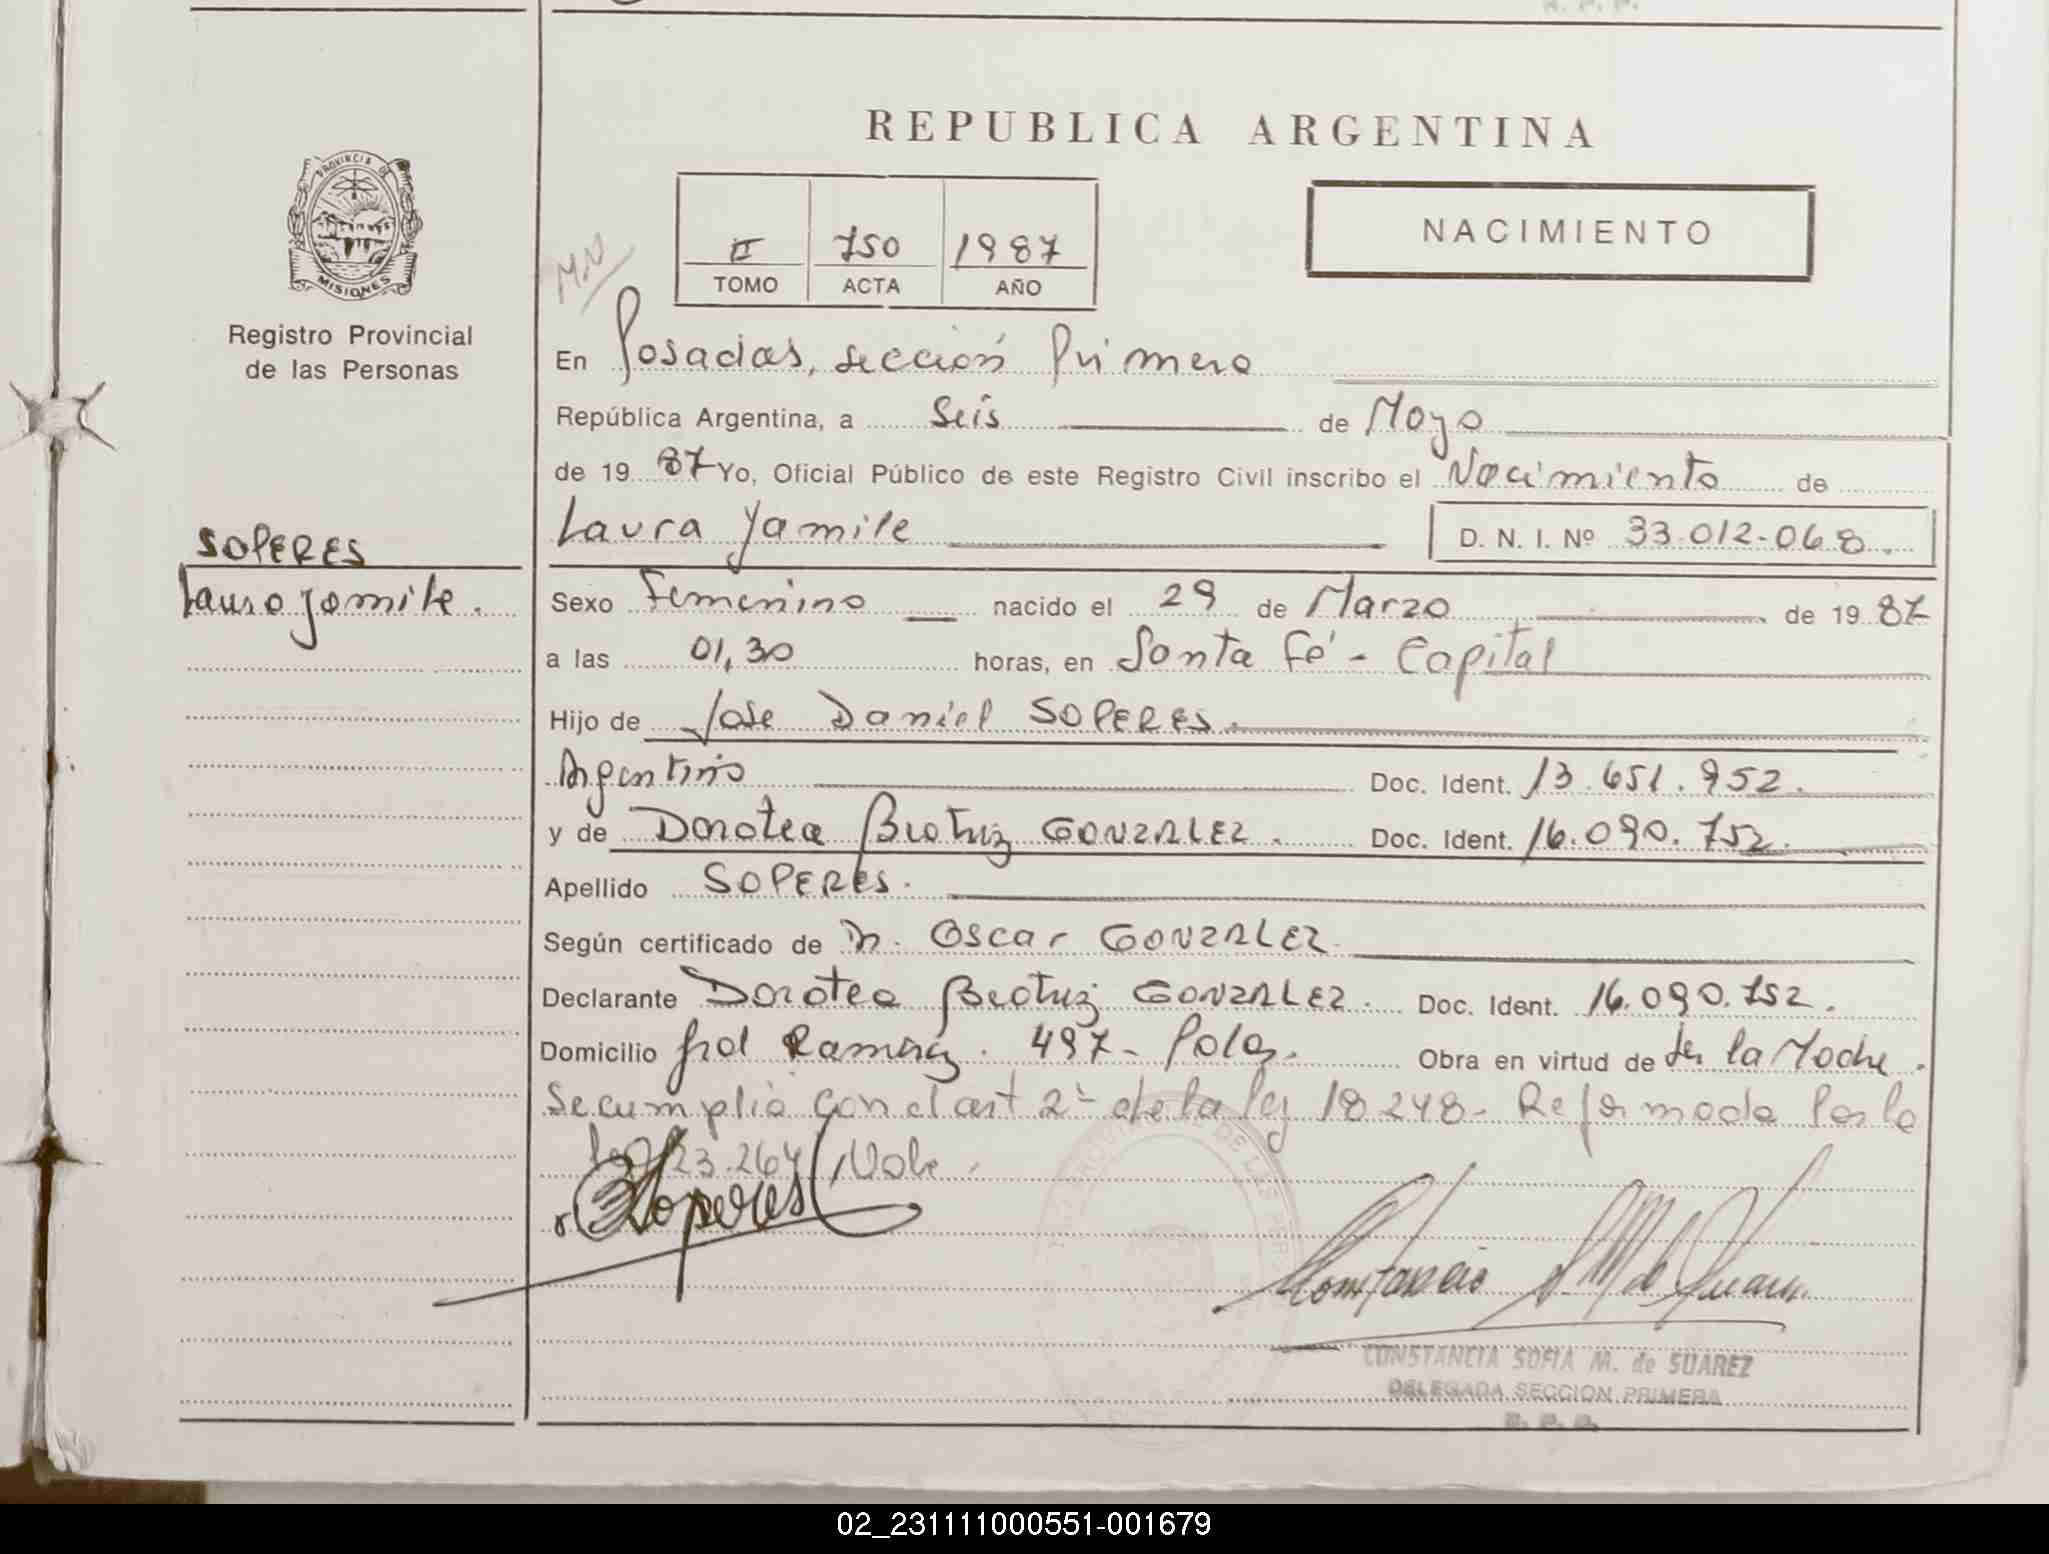 REPUBLICA ARGENTINA
PROVINCIA DE
MISIONES
Registro Provincial
de las Personas
II 750 1987
TOMO ACTA AÑO
NACIMIENTO
M.N
En Posadas, sección Primera
República Argentina, a Seis de Mayo
de 1987 Yo, Oficial Público de este Registro Civil inscribo el Nacimiento de
Laura Yamile D. N. I. Nº 33.012.068.
SOPERES
Laura Yamile.
Sexo Femenino nacido el 29 de Marzo de 1987
a las 01,30 horas, en Santa Fé - Capital
Hijo de Jose Daniel SOPERES.
Argentino Doc. Ident. 13.651.952.
y de Dorotea Beatriz GONZALEZ. Doc. Ident. 16.090.752.
Apellido SOPERES.
Según certificado de Dr. Oscar GONZALEZ.
Declarante Dorotea Beatriz GONZALEZ. Doc. Ident. 16.090.752.
Domicilio Gral Ramirez. 497- Obra en virtud de ser la Madre.
Se cumplió con el art 2º de la ley 18.248- Reformada Por la
Ley 23.264/ Vale.
Soperes
CONSTANCIA SOFIA M. de SUAREZ
DELEGADA SECCION PRIMERA
R. P. P.
02_231111000551-001679